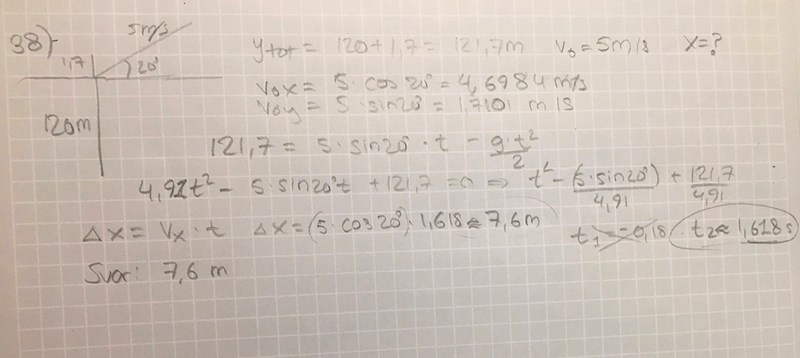 38)
5m/s
1,7
20°
120m
y_tot = 120+1,7 = 121,7m   V₀ = 5m/s   x=?
V₀x = 5 · cos20° = 4,6984 m/s
V₀y = 5 · sin20° = 1,7101 m/s
121,7 = 5 · sin20° · t - g·t²/2
t² - 5·sin20°t + 121,7 = 0 ⇒ t² - (5·sin20°)/4,91 + 121,7/4,91
Δx = Vx · t   Δx = (5 · cos20°) · 1,618 ≈ 7,6m   t₁ = -0,18   t₂ ≈ 1,618 s
Svar: 7,6 m